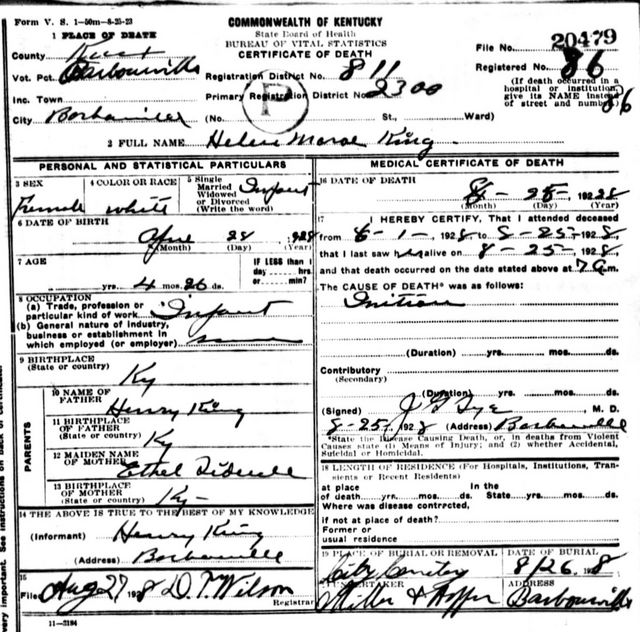 Form V. S. 1-50m-8-25-23
COMMONWEALTH OF KENTUCKY
State Board of Health
BUREAU OF VITAL STATISTICS
CERTIFICATE OF DEATH
1 PLACE OF DEATH
County Knox
Vot. Pct. Barbourville
Inc. Town
City Barbourville
Registration District No. 811
Primary Registration District No. 2300
P
(No. St., Ward)
File No. 20479
Registered No. 86
(If death occurred in a hospital or institution, give its NAME instead of street and number)
86
2 FULL NAME Helen King
PERSONAL AND STATISTICAL PARTICULARS
3 SEX Female
4 COLOR OR RACE White
5 Single Married Widowed or Divorced (Write the word) Infant
6 DATE OF BIRTH
April 28, 1928
(Month) (Day) (Year)
7 AGE
yrs. 4 mos. 26 ds.
IF LESS than 1 day hrs. or min?
8 OCCUPATION
(a) Trade, profession or particular kind of work Infant
(b) General nature of industry, business or establishment in which employed (or employer)
9 BIRTHPLACE
(State or country) Ky
PARENTS
10 NAME OF FATHER Henry King
11 BIRTHPLACE OF FATHER
(State or country) Ky
12 MAIDEN NAME OF MOTHER Ethel
13 BIRTHPLACE OF MOTHER
(State or country) Ky-
14 THE ABOVE IS TRUE TO THE BEST OF MY KNOWLEDGE
(Informant) Henry King
(Address) Barbourville
15
Filed Aug 27 1928 D. T. Wilson
Registrar
11-3184
MEDICAL CERTIFICATE OF DEATH
16 DATE OF DEATH
8-25-, 1928
(Month) (Day) (Year)
17 I HEREBY CERTIFY, That I attended deceased
from 6-1-, 1928, to 8-25-, 1928,
that I last saw h alive on 8-25-, 1928,
and that death occurred on the date stated above at 7 a.m.
The CAUSE OF DEATH* was as follows:
(Duration) yrs. mos. ds.
Contributory
(Secondary)
(Duration) yrs. mos. ds.
(Signed) M. D.
8-25, 1928 (Address) Barbourville
*State the Disease Causing Death, or, in deaths from Violent Causes state (1) Means of Injury; and (2) whether Accidental, Suicidal or Homicidal.
18 LENGTH OF RESIDENCE (For Hospitals, Institutions, Transients or Recent Residents)
at place of death yrs. mos. ds. In the State yrs. mos. ds.
Where was disease contracted,
if not at place of death?
Former or usual residence
19 PLACE OF BURIAL OR REMOVAL
City Cemetery
DATE OF BURIAL
8/26 1928
UNDERTAKER
Miller &
ADDRESS
Barbourville
very important. See instructions on back of certificate.